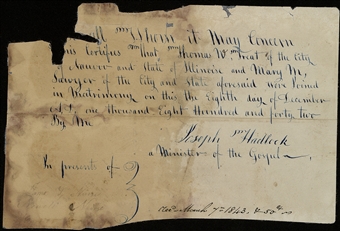 All Whom it May Concern
This Certifies that Thomas W. Treat of the City
of Nauvoo and State of Illinois and Mary M.
Sawyer of the City and state aforesaid were Joined
in Matrimony on this the Eighth day of December
A.D. one thousand Eight Hundred and forty two
By Me
Joseph Hadlock
a Minister of the Gospel
In presents of
March 7th 1843,